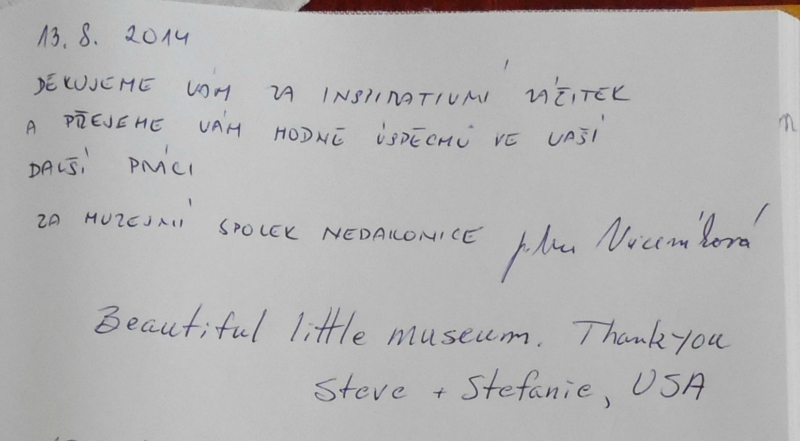 13. 8. 2014
DĚKUJEME VÁM ZA INSPIRATIVNÍ ZÁŽITEK
A PŘEJEME VÁM HODNĚ ÚSPĚCHŮ VE VAŠÍ
DALŠÍ PRÁCI
ZA MUZEJNÍ SPOLEK NEDAKONICE
Beautiful little museum. Thank you
Steve + Stefanie, USA